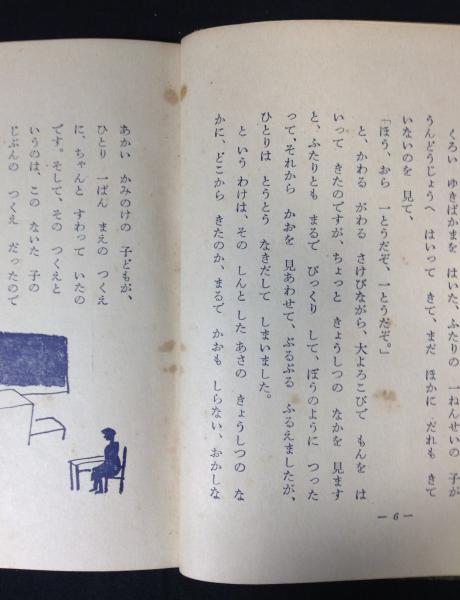 くろい ゆきばかまを はいた、ふたりの 一ねんせいの 子が
うんどうじょうへ はいって きて、まだ ほかに だれも きて
いないのを 見て、
「ほう、おら 一とうだぞ、一とうだぞ。」
と、かわる がわる さけびながら、大よろこびで もんを は
いって きたのですが、ちょっと きょうしつの なかを 見ます
と、ふたりとも まるで びっくり して、ぼうのように つった
って、それから かおを 見あわせて、ぶるぶる ふるえましたが、
ひとりは とうとう なきだして しまいました。
と いう わけは、その しんと した あさの きょうしつの な
かに、どこから きたのか、まるで かおも しらない、おかしな
— 6 —
あかい かみのけの 子どもが、
ひとり 一ばん まえの つくえ
に、ちゃんと すわって いたの
です。そして、その つくえと
いうのは、この ないた 子の
じぶんの つくえ だったので